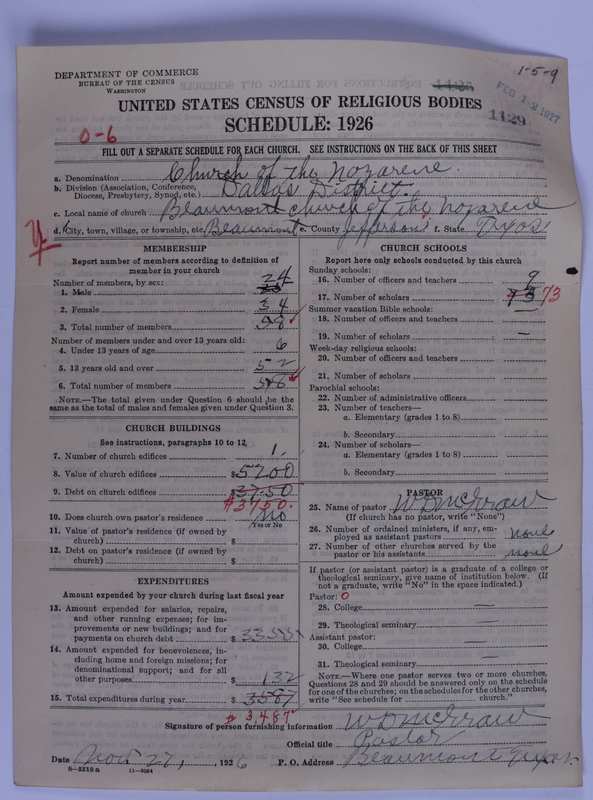 DEPARTMENT OF COMMERCE
BUREAU OF THE CENSUS
WASHINGTON
1-5-9
1125
FEB 12 1927
1129
UNITED STATES CENSUS OF RELIGIOUS BODIES
SCHEDULE: 1926
0-6
FILL OUT A SEPARATE SCHEDULE FOR EACH CHURCH. SEE INSTRUCTIONS ON THE BACK OF THIS SHEET
a. Denomination Church of the Nazarene.
b. Division (Association, Conference, Diocese, Presbytery, Synod, etc.) Dallas District.
c. Local name of church Beaumont church of the Nazarene
d. City, town, village, or township, etc. Beaumont e. County Jefferson f. State Texas
MEMBERSHIP
Report number of members according to definition of
member in your church
Number of members, by sex:
1. Male 24
2. Female 34
3. Total number of members 58
Number of members under and over 13 years old:
4. Under 13 years of age 6
5. 13 years old and over 52
6. Total number of members 58
NOTE.—The total given under Question 6 should be the
same as the total of males and females given under Question 3.
CHURCH BUILDINGS
See instructions, paragraphs 10 to 12
7. Number of church edifices 1.
8. Value of church edifices $5200
9. Debt on church edifices $3750
$3750.
10. Does church own pastor's residence No
Yes or No
11. Value of pastor's residence (if owned by
church) $
12. Debt on pastor's residence (if owned by
church) $
EXPENDITURES
Amount expended by your church during last fiscal year
13. Amount expended for salaries, repairs,
and other running expenses; for im-
provements or new buildings; and for
payments on church debt $3355
14. Amount expended for benevolences, in-
cluding home and foreign missions; for
denominational support; and for all
other purposes $132
15. Total expenditures during year $3587
$3,487
CHURCH SCHOOLS
Report here only schools conducted by this church
Sunday schools:
16. Number of officers and teachers 9
17. Number of scholars 73 73
Summer vacation Bible schools:
18. Number of officers and teachers —
19. Number of scholars —
Week-day religious schools:
20. Number of officers and teachers
21. Number of scholars
Parochial schools:
22. Number of administrative officers
23. Number of teachers—
a. Elementary (grades 1 to 8)
b. Secondary
24. Number of scholars—
a. Elementary (grades 1 to 8)
b. Secondary
PASTOR
25. Name of pastor W D McGraw
(If church has no pastor, write "None")
26. Number of ordained ministers, if any, em-
ployed as assistant pastors none
27. Number of other churches served by the
pastor or his assistants none
If pastor (or assistant pastor) is a graduate of a college or
theological seminary, give name of institution below. (If
not a graduate, write "No" in the space indicated.)
Pastor: 0
28. College —
29. Theological seminary —
Assistant pastor:
30. College —
31. Theological seminary —
NOTE.—Where one pastor serves two or more churches,
Questions 28 and 29 should be answered only on the schedule
for one of the churches; on the schedules for the other churches,
write "See schedule for ______ church."
Signature of person furnishing information W D McGraw
Official title Pastor
Date Nov 27, 1926 P. O. Address Beaumont Texas
8—5518 a 11—9064